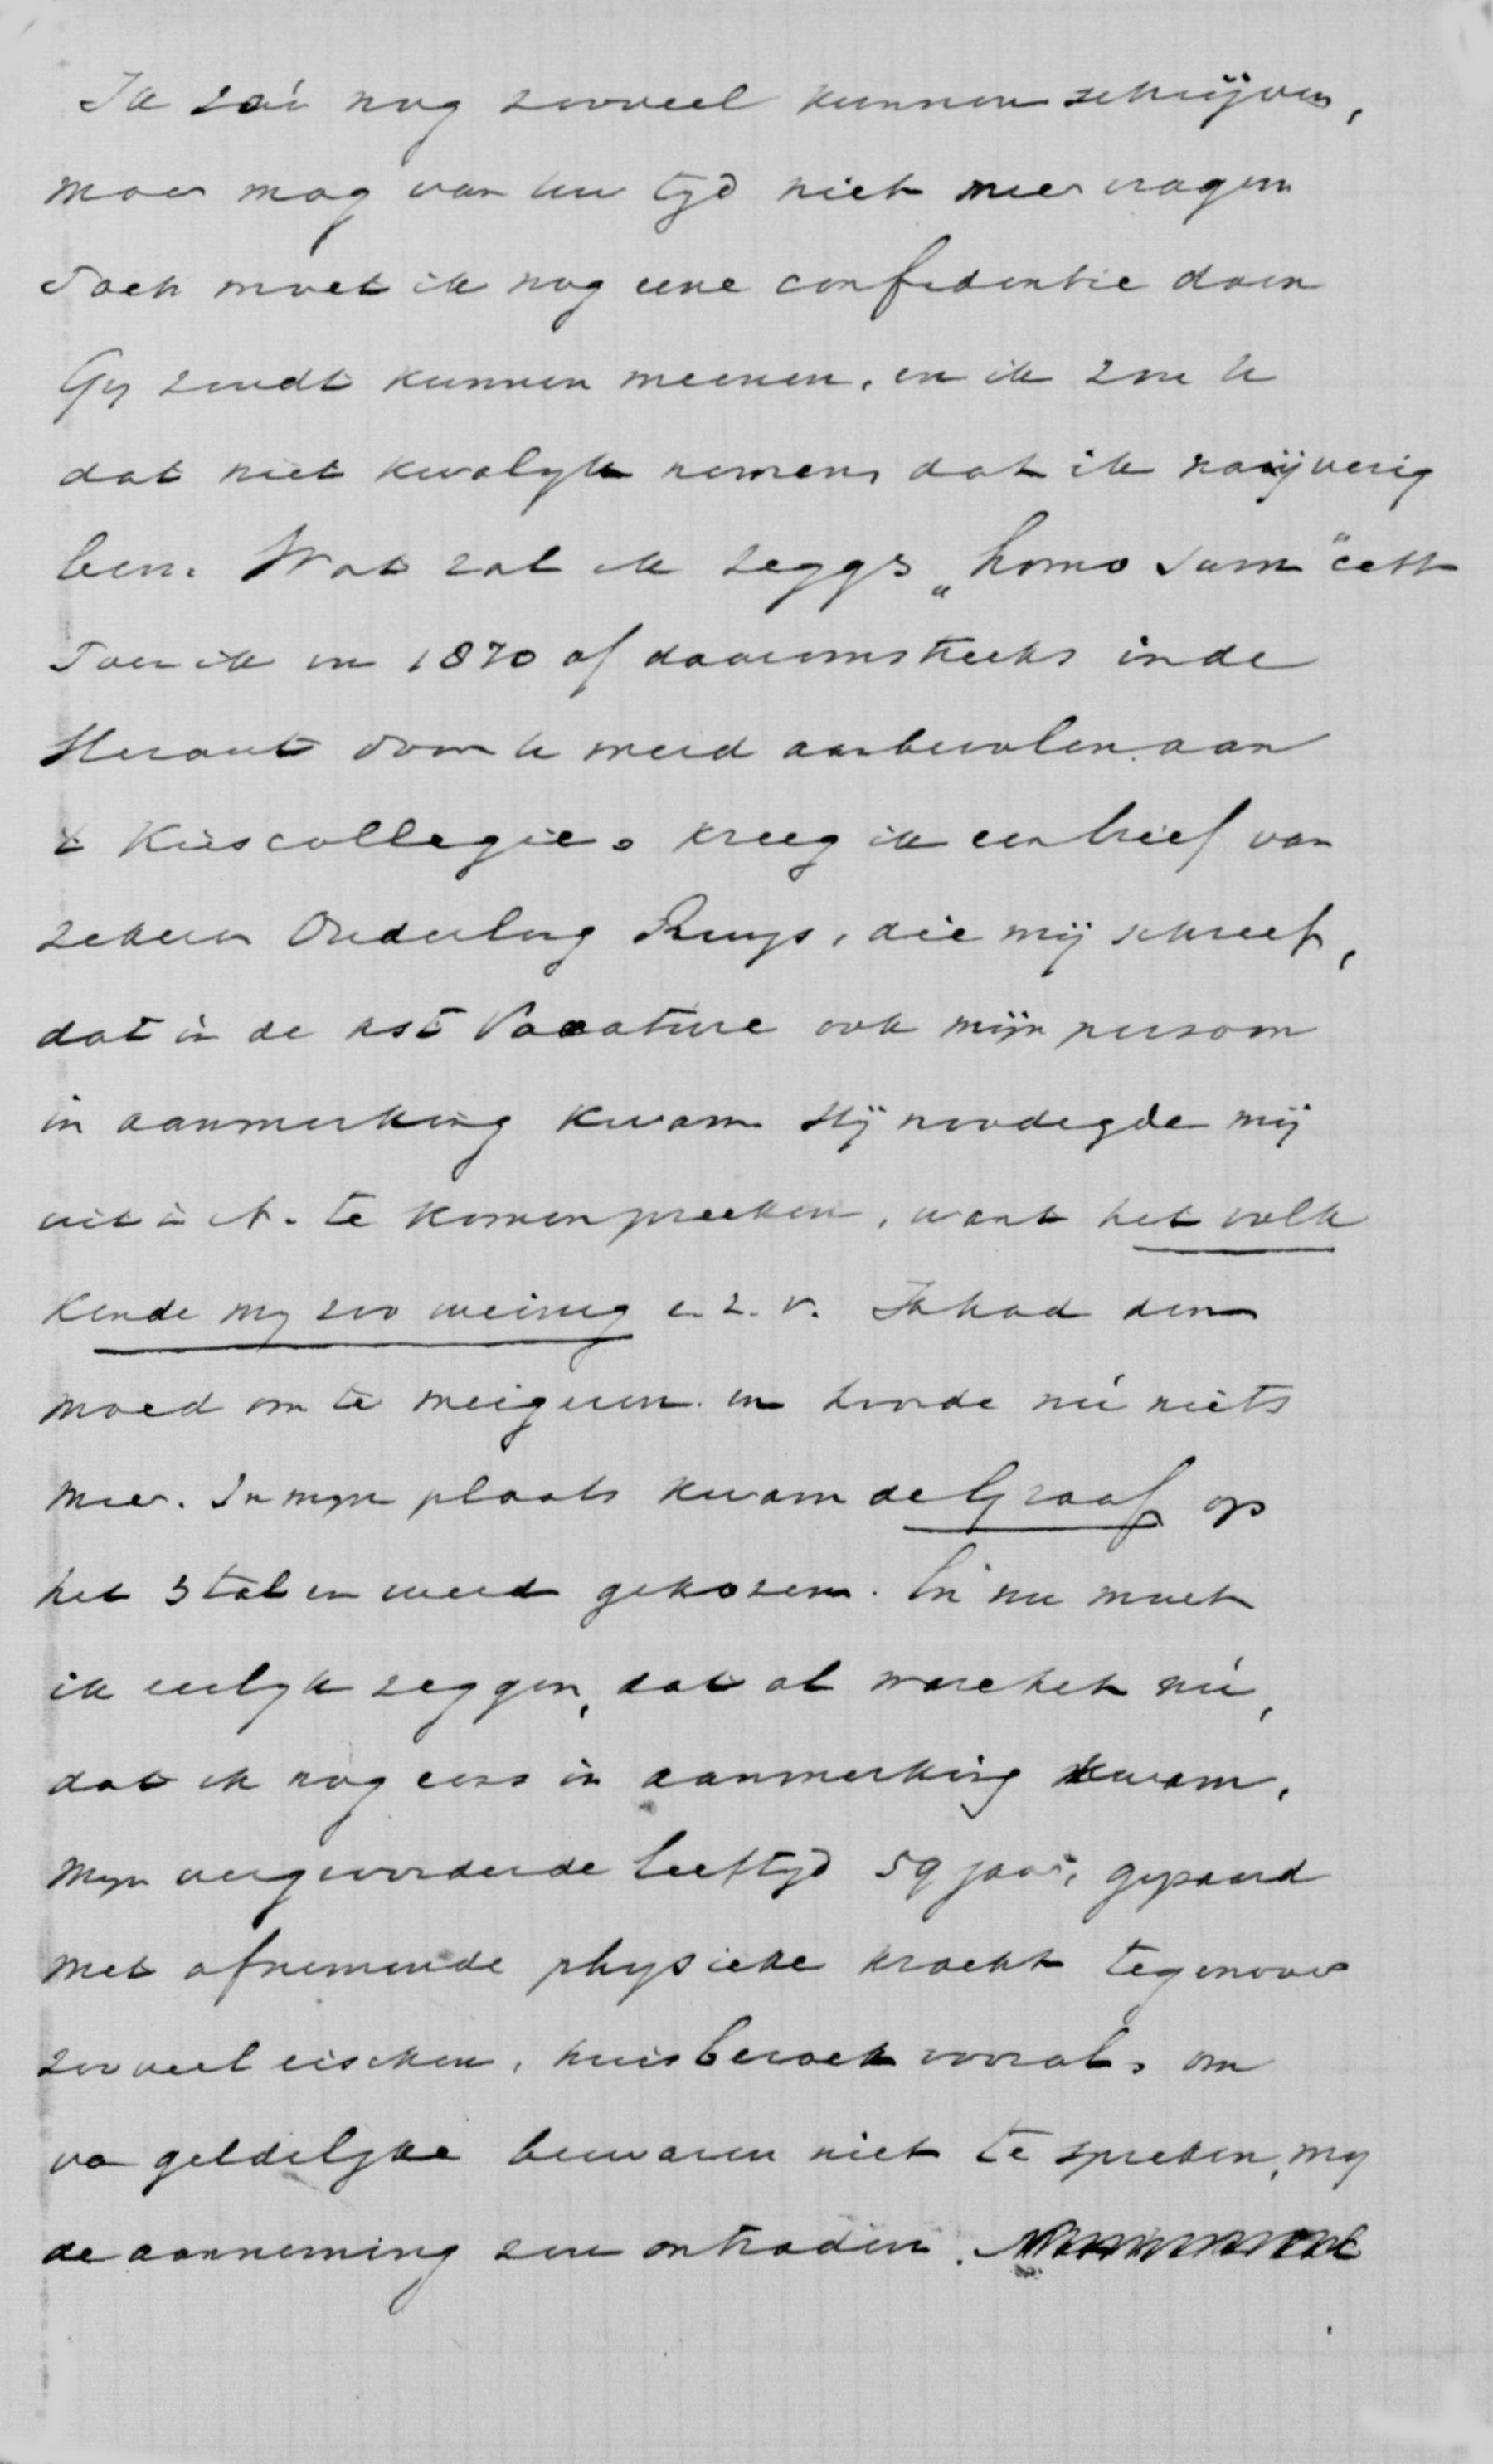 Ik zoú nog zooveel kunnen schrijven,
maar mag van uw tyd niet meer vragen
Toch moet ik nog eene confidentie doen
Gy zoudt kunnen meenen, en ik zou u
dat niet kwalyk nemen, dat ik naijverig
ben. Wat zal ik zeggen „homo sum" cett
Toen ik in 1870 of daaromstreeks in de
Heraut door u werd aanbevolen aan
't Kiescollegie, kreeg ik een brief van
zekeren Ouderling Ruys, die mij schreef,
dat in de 1st Vacature ook mijn persoon
in aanmerking kwam Hij noodigde mij
uit in A. te komen preeken, want het volk
kende my zoo weinig e. z. v. Ik had den
moed om te weigeren en hoorde nú niets
meer. In myn plaats kwam de Graaf op
het 3 tal en werd gekozen. En nu moet
ik eerlyk zeggen, dat al ware het nú,
dat ik nog eens in aanmerking kwam,
Myn vergevorderde leeftyd 59 jaar, gepaard
met afnemende physieke kracht tegenover
zooveel eischen, huisbezoek vooral, om
va geldelyke bezwaren niet te spreken, my
de aanneming zou ontraden.